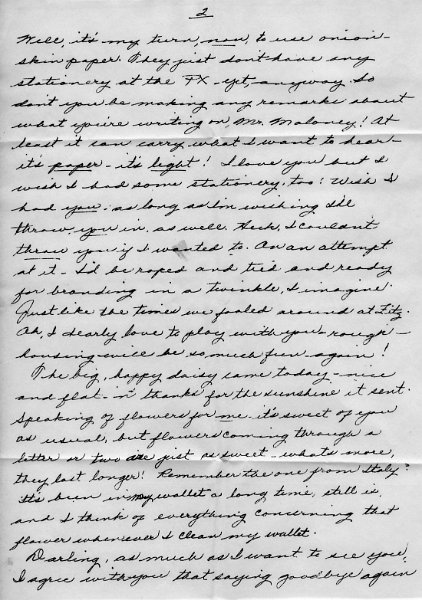 2
Well, it's my turn, now, to use onion-
skin paper. They just don't have any
stationery at the PX - yet, anyway. So
don't you be making any remarks about
what you're writing on Mr. Maloney! At
least it can carry what I want to hear -
it's paper - it's light! I love you but I
wish I had some stationery, too! Wish I
had you - as long as I'm wishing I'll
throw you in, as well. Heck, I couldn't
throw you if I wanted to. On an attempt
at it - I'd be roped and tied and ready
for branding in a twinkle, I imagine.
Just like the times we fooled around at Fitz.
Oh, I dearly love to play with you - rough-
housing will be so much fun again!
The big, happy daisy came today - nice
and flat - 'n thanks for the sunshine it sent.
Speaking of flowers for me - it's sweet of you
as usual, but flowers coming through a
letter or two are just as sweet - what's more,
they last longer! Remember the one from Italy?
It's been in my wallet a long time, still is,
and I think of everything concerning that
flower whenever I clean my wallet.
Darling, as much as I want to see you,
I agree with you that saying goodbye again